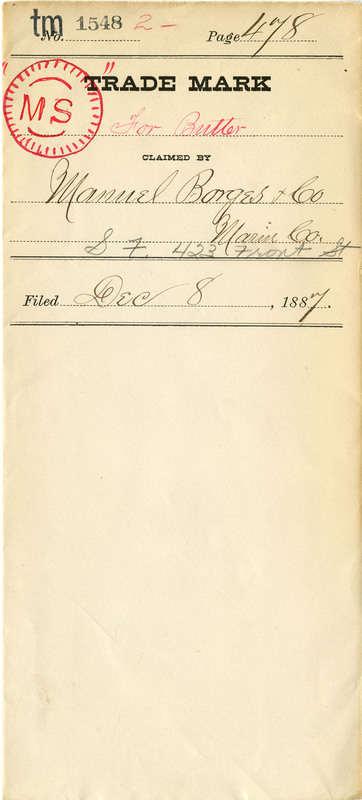 tm 1548 2-
No. Page 478
" "
MS
TRADE MARK
For Butter
CLAIMED BY
Manuel Borges & Co
Marin Co.
S F. 423 Front St
Filed Dec 8, 1887.